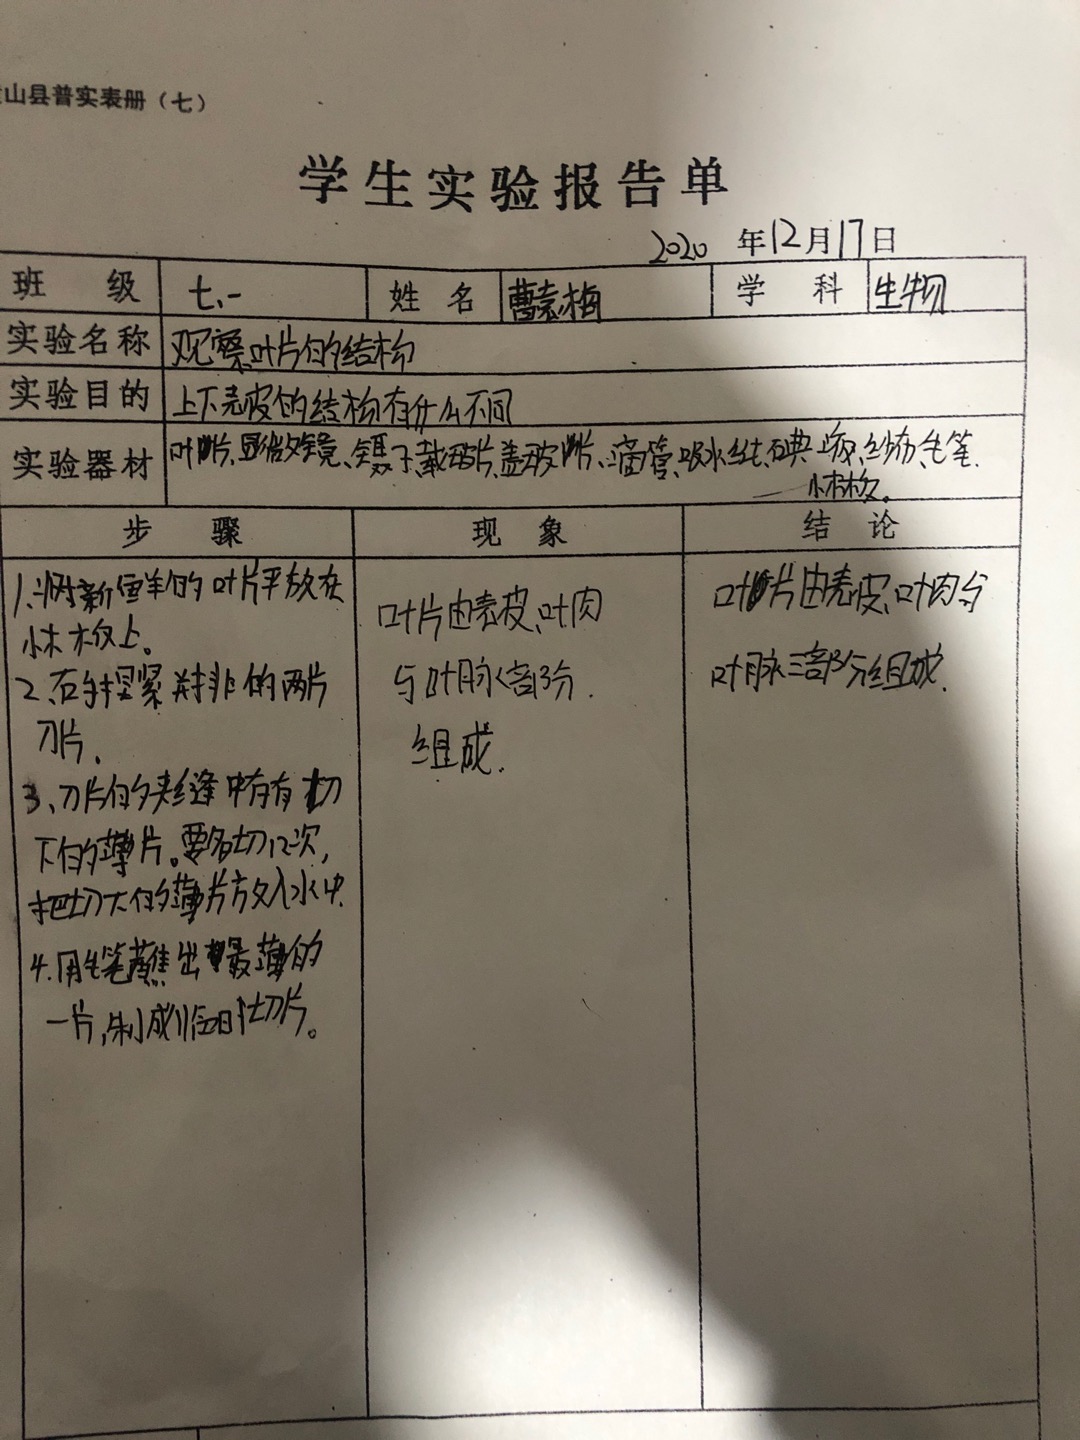 山县普实表册（七）
学生实验报告单
2020 年12月17日
班 级 七、一 姓 名 曹袁梅 学 科 生物
实验名称 观察叶片的结构
实验目的 上下表皮的结构有什么不同
实验器材 叶片、显微镜、镊子、载玻片、盖玻片、滴管、吸水纸、碘 纱布、毛笔、
小木板。
步 骤 现 象 结 论
1、将新鲜的叶片平放在
小木板上。
2、右手捏紧并排的两片
刀片。
3、刀片的夹缝中存有切
下的薄片。要多切几次，
把切下的薄片放入水中.
4.用毛笔蘸出最薄的
一片，制成临时切片。
叶片由表皮、叶肉
与叶脉 部分.
组成.
叶片由表皮、叶肉与
叶脉三部分组成.